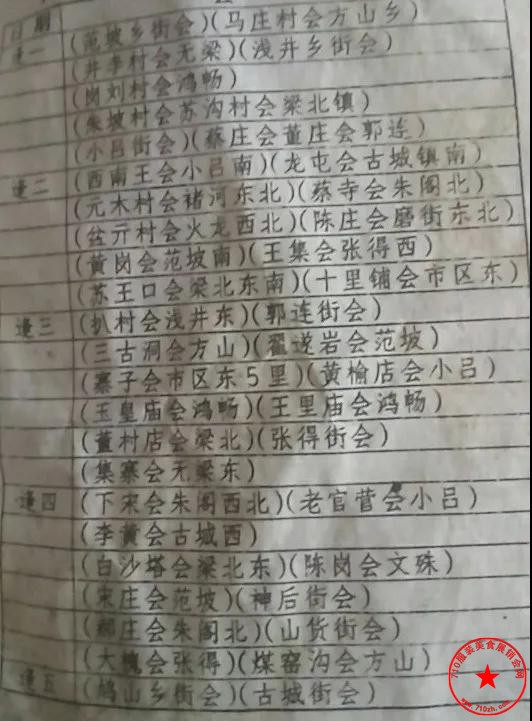 日期
逢一 (范坡乡街会)(马庄村会方山乡)
(井李村会无梁)(浅井乡街会)
(岗刘村会鸿畅)
(朱坡村会苏沟村会梁北镇)
(小吕街会)(蔡庄会董庄会郭连)
逢二 (西南王会小吕南)(龙屯会古城镇南)
(元木村会褚河东北)(蔡寺会朱阁北)
(岔亓村会火龙西北)(陈庄会磨街东北)
(黄岗会范坡南)(王集会张得西)
(苏王口会梁北东南)(十里铺会市区东)
逢三 (扒村会浅井东)(郭连街会)
(三古洞会方山)(翟遂岩会范坡)
(寨子会市区东5里)(黄榆店会小吕)
(玉皇庙会鸿畅)(王里庙会鸿畅)
(董村店会梁北)(张得街会)
(集寨会无梁东)
逢四 (下宋会朱阁西北)(老官营会小吕)
(李黄会古城西)
(白沙塔会梁北东)(陈岗会文殊)
(宋庄会范坡)(神后街会)
(郝庄会朱阁北)(山货街会)
(大槐会张得)(煤窑沟会方山)
逢五 (鸠山乡街会)(古城街会)
710服装美食展销会网
www.710zh.com